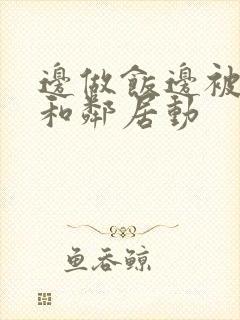 邊做飯邊被
和鄰居動
魚吞鯨